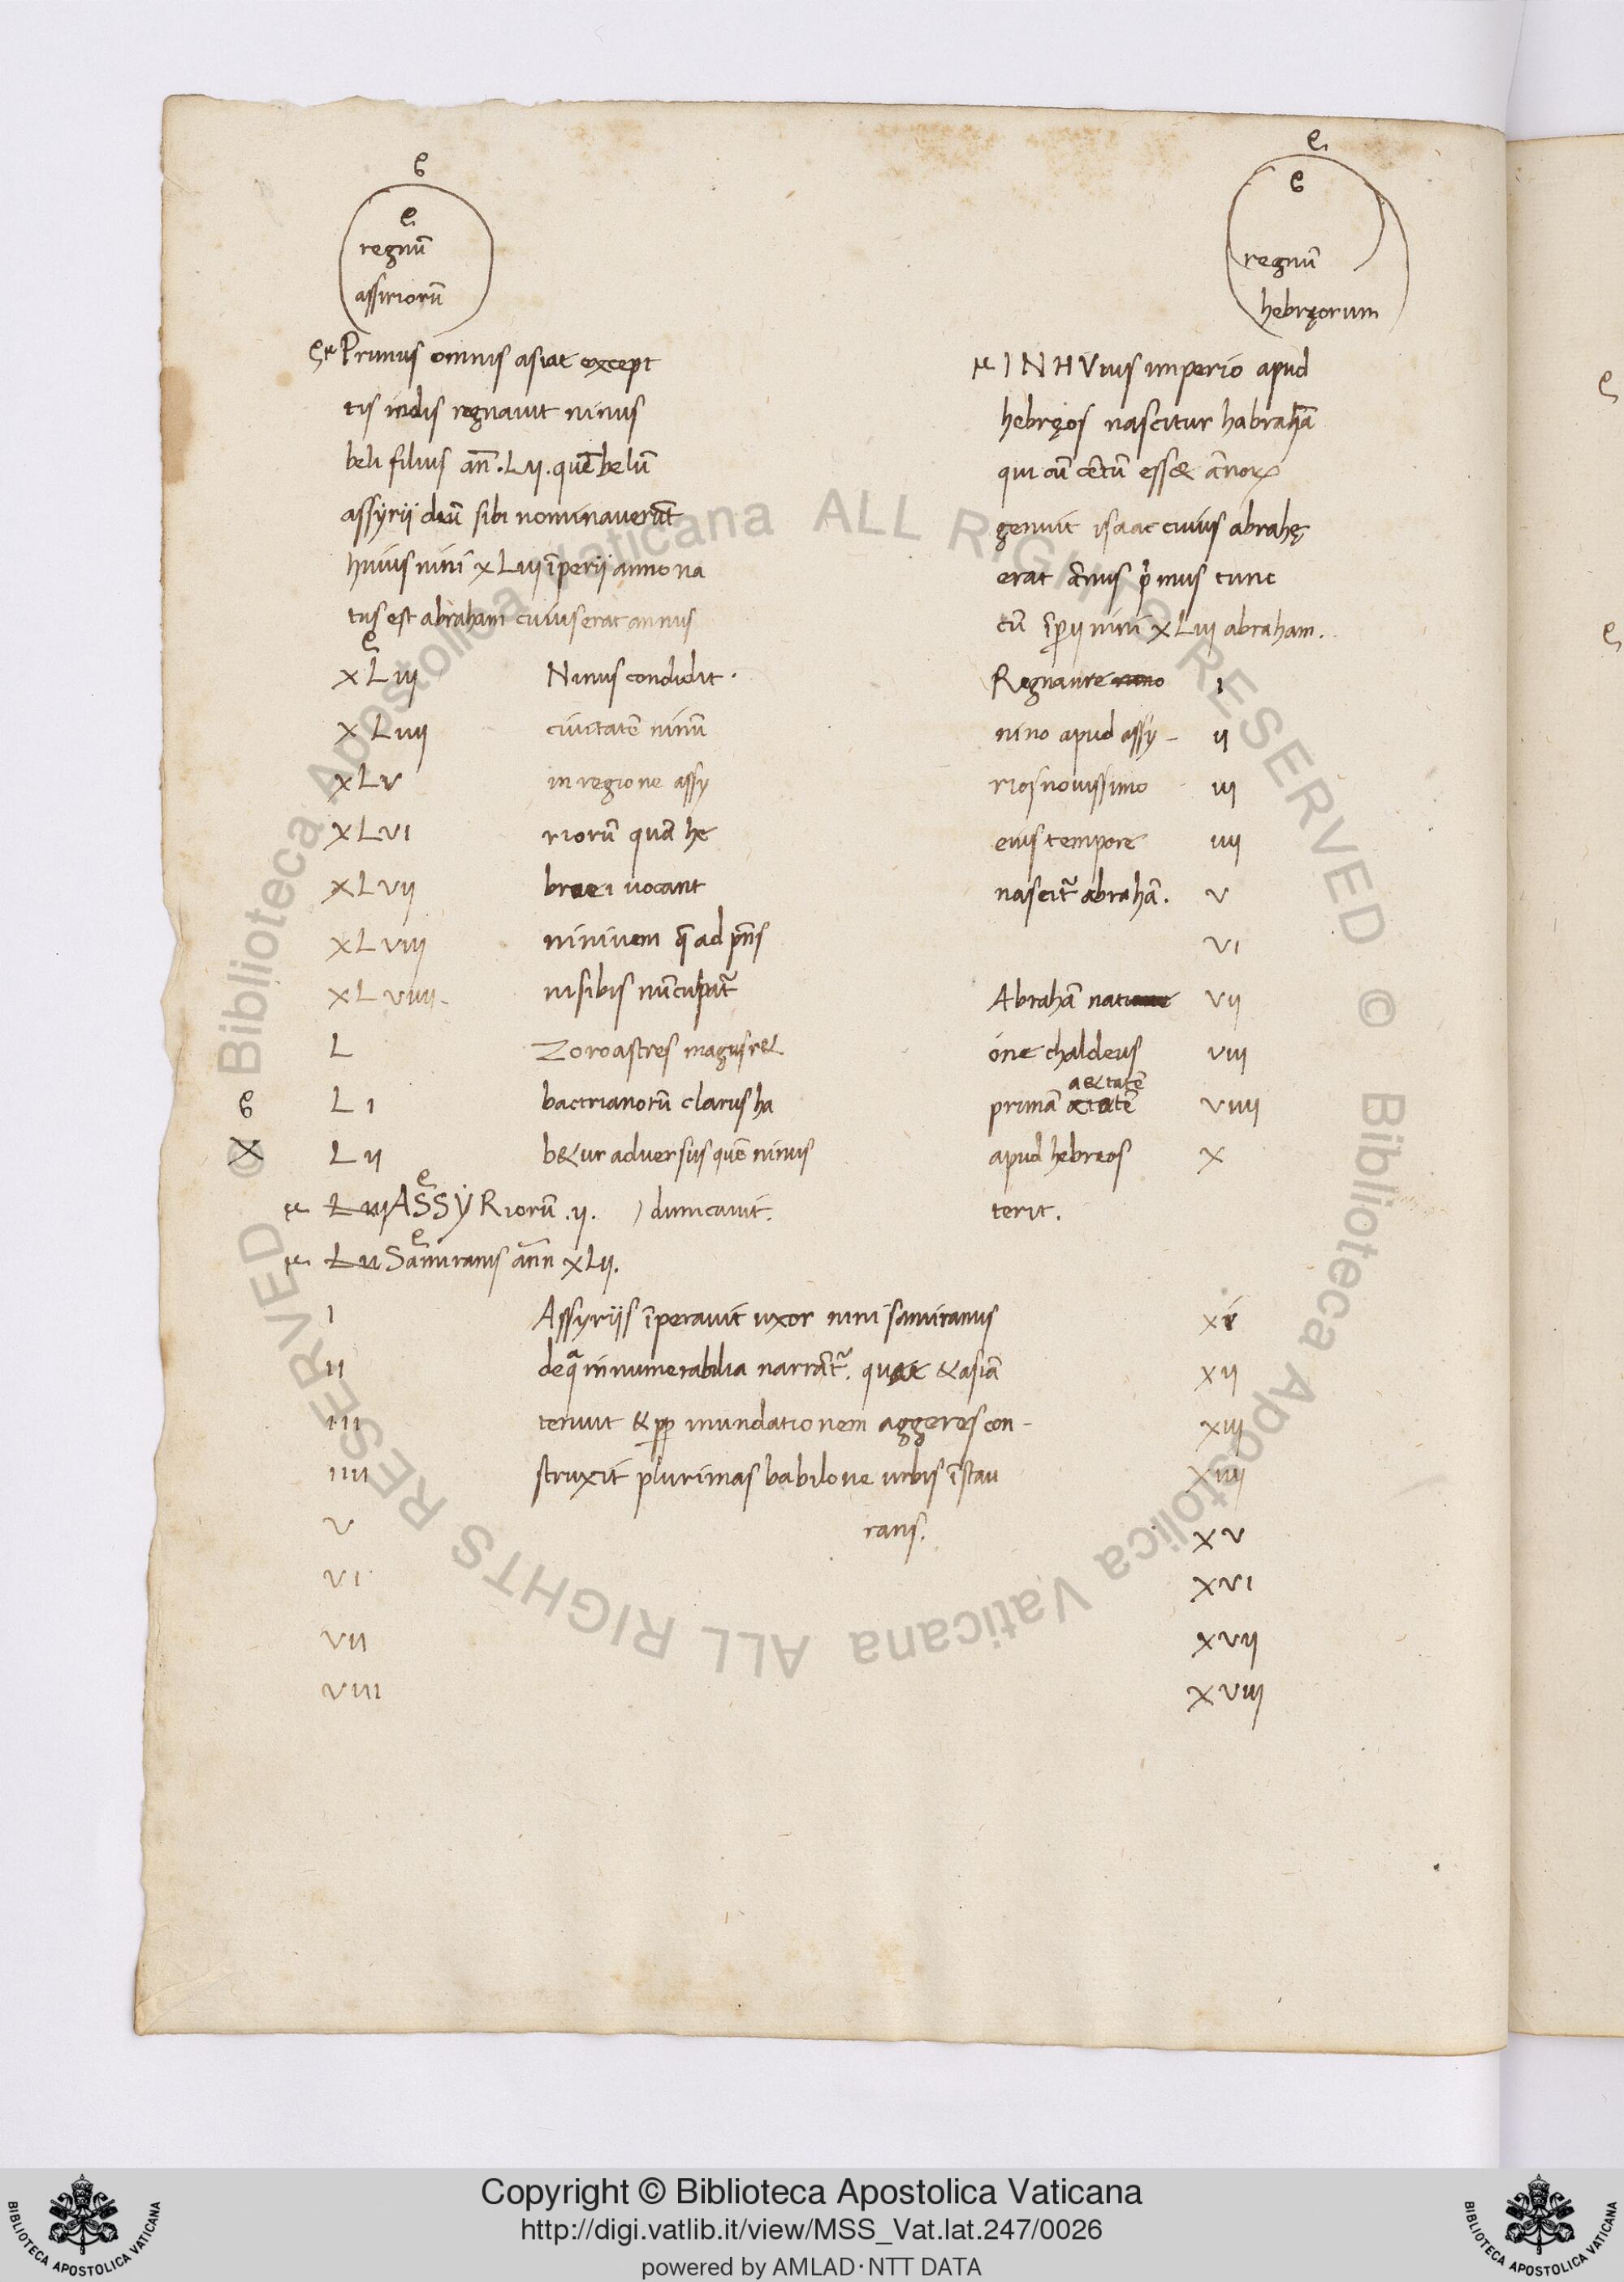 ϐ
e.
regnũ
assiriorũ
e.
ϐ
regnũ
hebręorum
Primus omnis asiae except
tis indis regnavit ninus
beli filius añ. Lij. quẽ belũ
assÿrii deũ sibi nominaverũt
huius nini xLiij ĩperii anno na
tus est abraham cuius erat annus
INHVius imperio apud
hebręos nascitur habrahã
qui cũ cẽtũ ess& ãnoꝝ
genuit isaac cuius abrahę
erat ãnus p̃mus tunc
cũ ĩꝑij nini xLiij abraham.
xLiij Ninus condidit. Regnante nino I
xLiiij civitatẽ ninũ nino apud assÿ- ij
xLv in regione assy rios novissimo iij
xLvi riorũ quã he eius tempore iiij
xLvij braei vocant nascit᷑ abrahã. v
xLviij ninivem q̃ ad p̃ns vi
xLviiij. nisibis nũcupat᷑ Abrahã natione vij
L Zoroastres magus r& one chaldeus viij
aetatẽ
ϐ Li bactrianorũ clarus ha primã etatẽ viiij
X Lij b&ur adversus quẽ ninus apud hebreos x
Liij ASSŸRiorũ .ij. dimicavit. terit.
Lii Samiramis ãnn xLij.
I Assyriis ĩperavit uxor nini samiramis xi
II de q̃ innumerabilia narrãt᷑. quae & asiã xij
III tenuit & ꝓp inundationem aggeres con- xiij
IIII struxit plurimas babilone urbis ĩstau xiiij
V rans. xv
VI xvi
VII xvij
VIII xviij
© Biblioteca Apostolica Vaticana ALL RIGHTS RESERVED © Biblioteca Apostolica Vaticana ALL RIGHTS RESERVED
Copyright © Biblioteca Apostolica Vaticana
http://digi.vatlib.it/view/MSS_Vat.lat.247/0026
powered by AMLAD·NTT DATA
BIBLIOTECA APOSTOLICA VATICANA
BIBLIOTECA APOSTOLICA VATICANA